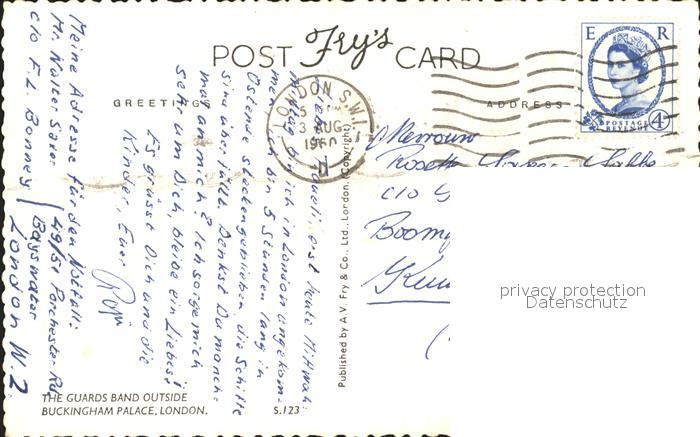 POST Fry's CARD
GREETINGS
ADDRESS
E R
POSTAGE
REVENUE
4D
LONDON S.W.1
3 AUG
1960
erst heute Mittwoch
bin ich in London angekom-
men, bin 3 Stunden lang in
Ostende steckengeblieben, die Schiffe
sind so voll. Denkst Du manch-
mal an mich? Ich sorge mich
sehr um Dich, bleibe ein Liebes!
Es grüsst Dich und die
Kinder, Euer
Meine Adress für den Notfall:
Mr. Walter
49/51 Porchester Rd
c/o F.L. Bonney
Bayswater
London W.2.
Published by A.V. Fry & Co., Ltd., London. (Copyright)
c/o
THE GUARDS BAND OUTSIDE
BUCKINGHAM PALACE, LONDON. S.123
privacy protection
Datenschutz